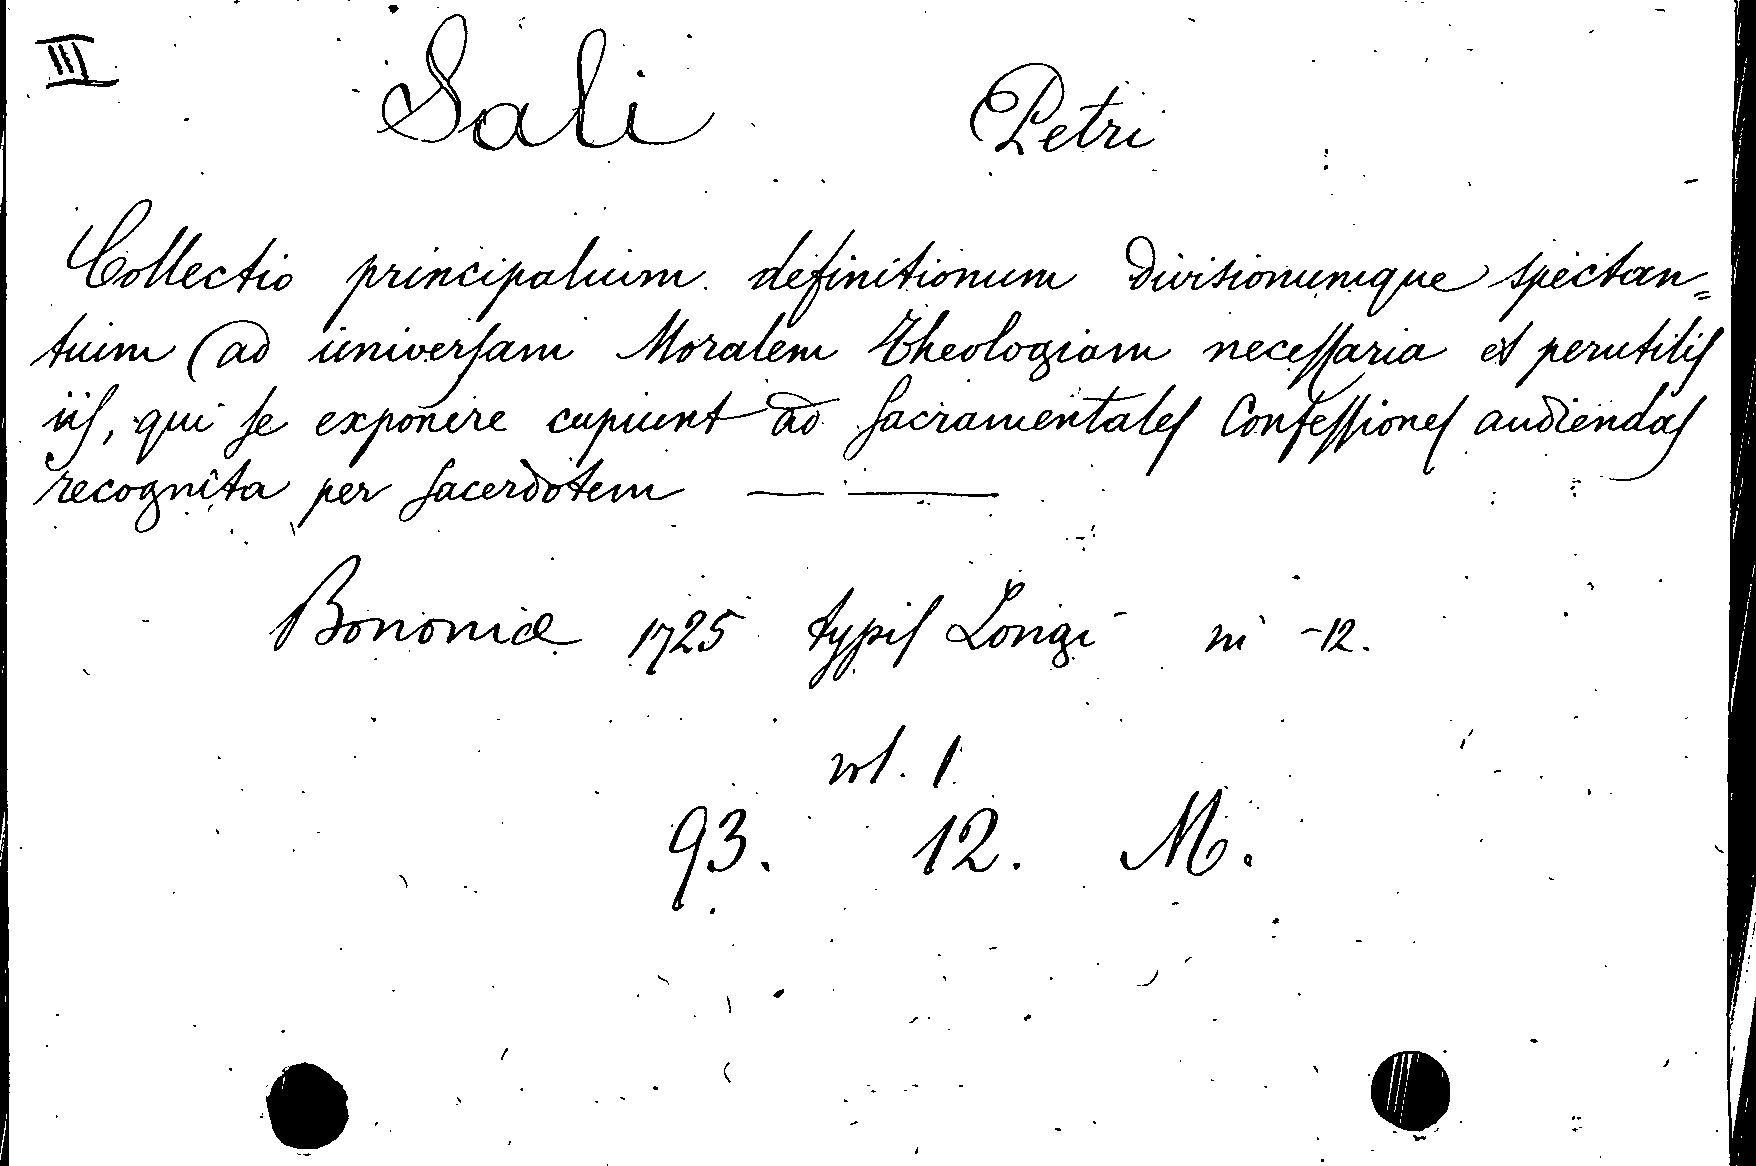 III
Sali Petri
Collectio principalium definitionum divisionumque spectan=
tium ad universam Moralem Theologiam necessaria et perutilis
iis, qui se exponere cupiunt ad sacramentales Confessiones audiendas
recognita per sacerdotem — —
Bononiæ 1725 typis Longi in -12.
vol. 1
93. 12. M.